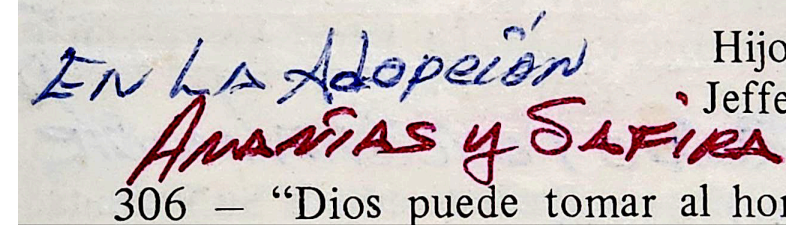 Hijo
EN LA Adopción
Jeffe
ANANÍAS y SAFIRA
306 – “Dios puede tomar al hor